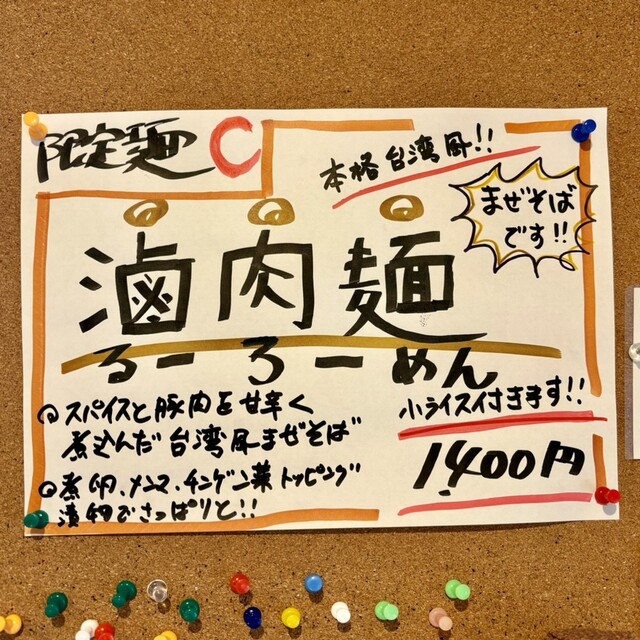 限定麺 C
本格台湾風!!
まぜそば
です!!
滷肉麺
るーろーめん
スパイスと豚肉を甘辛く
煮込んだ台湾風まぜそば
煮卵、メンマ、チンゲン菜トッピング
漬物でさっぱりと!!
小ライス付きます!!
1,400円